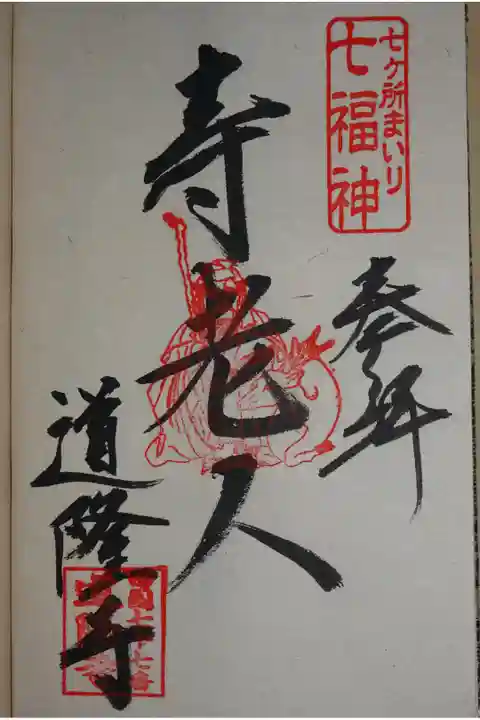 七ヶ所まいり
七福神
奉拝
寿老人
道隆寺